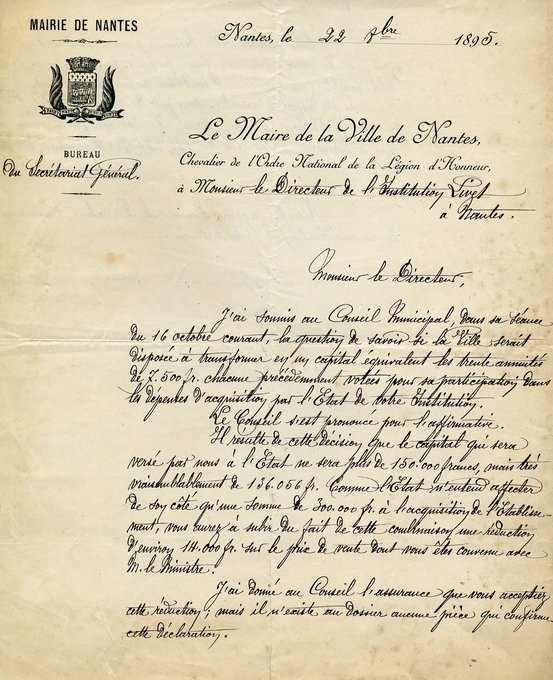 MAIRIE DE NANTES
Nantes, le 22 8bre 1895.
BUREAU
du Secrétariat Général.
Le Maire de la Ville de Nantes,
Chevalier de l'Ordre National de la Légion d'Honneur,
à Monsieur le Directeur de l'Institution Livet
à Nantes.
Monsieur le Directeur,
J'ai soumis au Conseil Municipal, dans sa séance
du 16 octobre courant, la question de savoir si la Ville serait
disposée à transformer en un capital équivalent les trente annuités
de 7.500 fr. chacune précédemment votées pour sa participation dans
les dépenses d'acquisition par l'Etat de votre Institution.
Le Conseil s'est prononcé pour l'affirmative.
Il résulte de cette décision que le capital qui sera
versé par nous à l'Etat ne sera plus de 150.000 francs, mais très
vraisemblablement de 136.056 fr. Comme l'Etat n'entend affecter
de son côté qu'une somme de 300.000 fr. à l'acquisition de l'Etablisse-
ment, vous aurez à subir du fait de cette combinaison une réduction
d'environ 14.000 fr. sur le prix de vente dont vous êtes convenu avec
M. le Ministre.
J'ai donné au Conseil l'assurance que vous acceptiez
cette réduction; mais il n'existe au dossier aucune pièce qui confirme
cette déclaration.